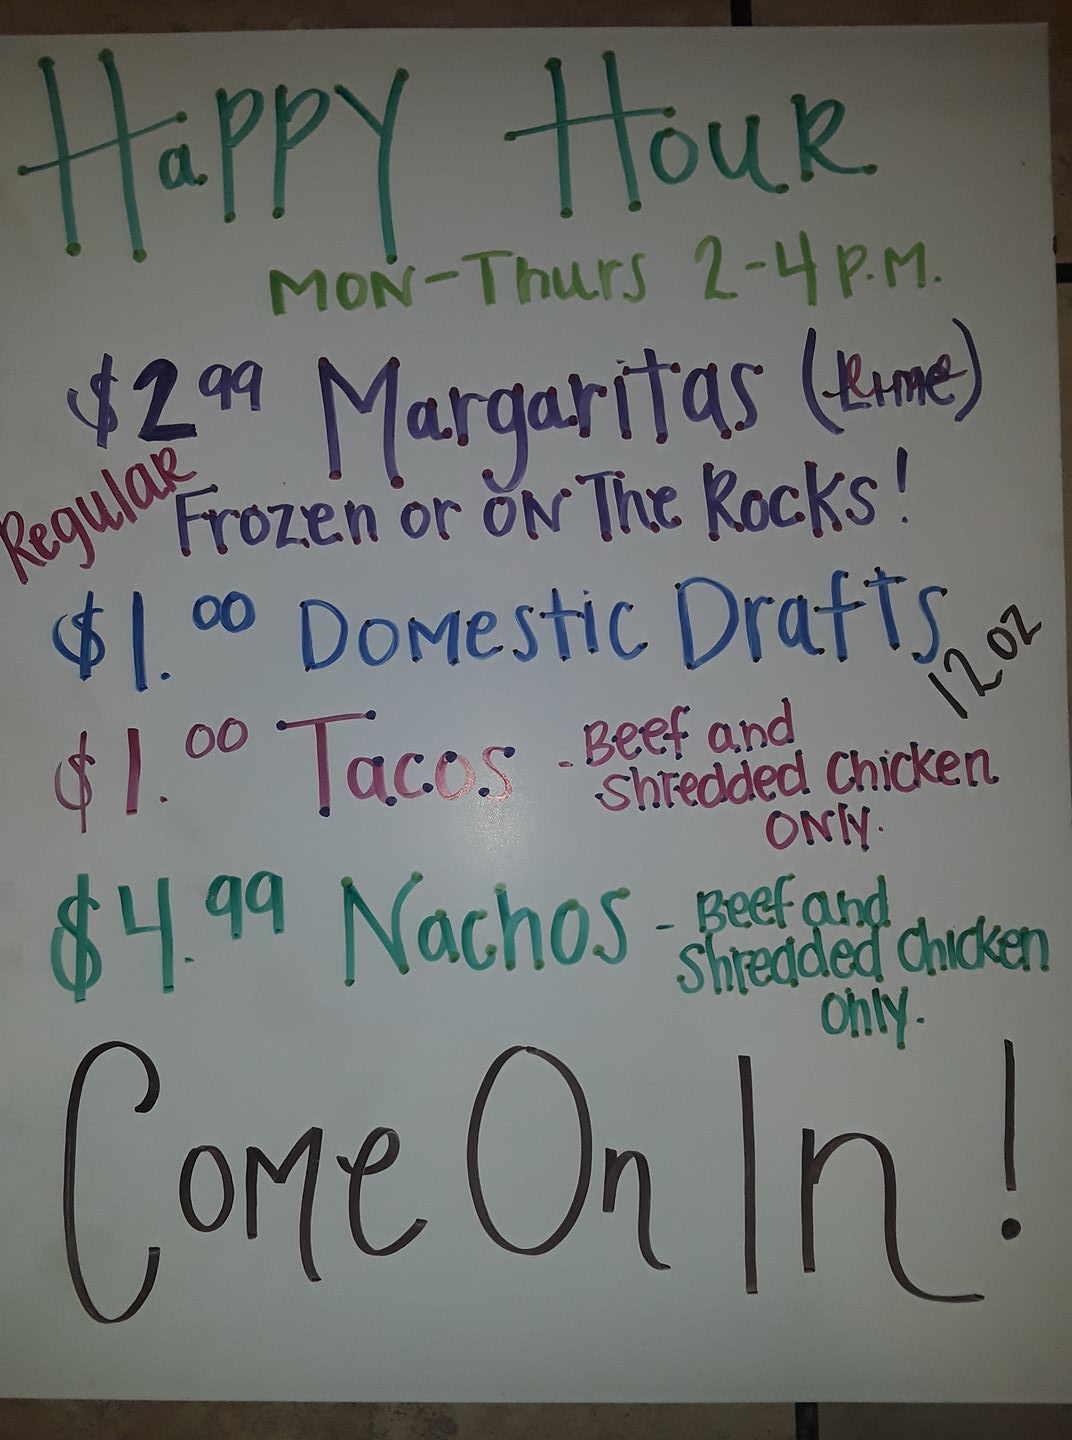 HaPPY HouR
MON-Thurs 2-4 P.M.
$2.99 Margaritas (Lime)
Regular
Frozen or ON The Rocks!
$1.00 Domestic Drafts
12 oz
$1.00 Tacos - Beef and
shredded Chicken
ONly.
$4.99 Nachos - Beef and
Shredded Chicken
Only.
Come On In!